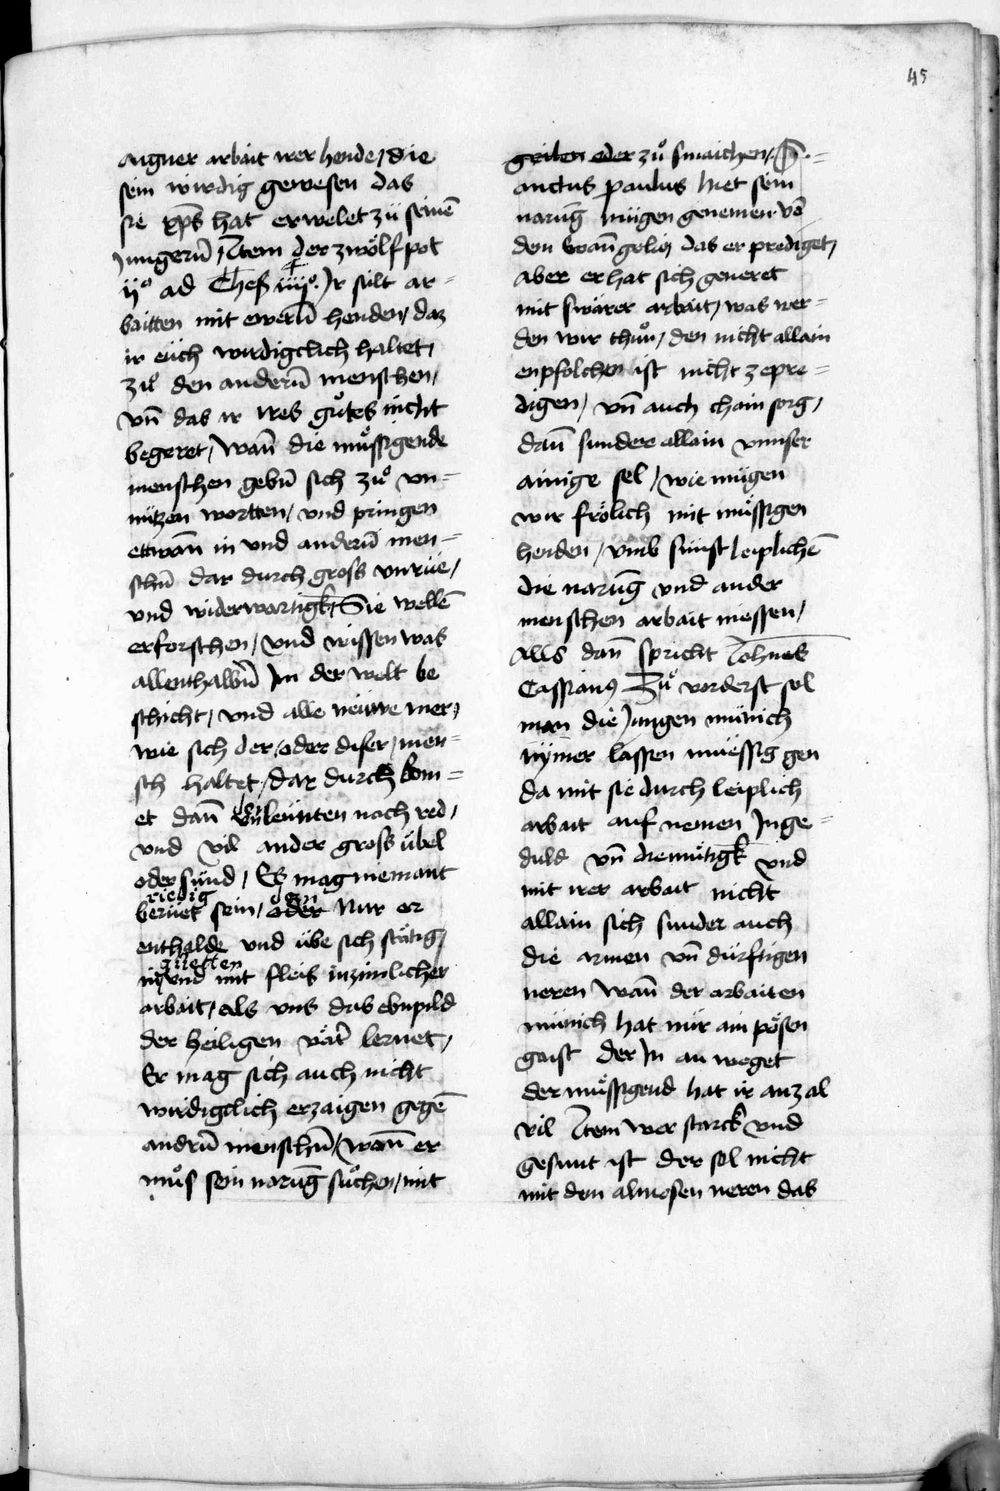 45
aigner arbait irer hende / die
sein wirdig gewesen das
sie xp̄s hat erwelet zü seinē
Jungerñ / Item der zwölfpot
ijº ad Thes iiijº. Ir sült ar=
baitten mit ewerñ henden / daz
ir eüch wirdigclich haltet /
zuͦ den anderñ menschen /
vn̄ das ir ires guͦtes nicht
begeret / wan̄ die muͤssigende
menschen gebñ sich zuͦ vn=
nützen wortten / vnd pringen
ettwan̄ in vnd anderñ men=
schñ dar durch gross vnrüe /
vnd widerwartigk̄ / Sie wellē
erforschen / vnd wissen was
allenthalbñ In der welt be
schicht / vnd alle neüwe mer /
wie sich der / oder diser / men=
sch haltet / dar durch kom=
et dan̄ leünten noch red /
vnd vil ander gross übel
oder sünd / Es mag niemant
riebig
berüet sein / oder Nur er
enthalde vnd übe sich stätig /
in vnd mit fleis inzimlicher
arbait / als vns das ebnpild
der heiligen vät̄ lernet /
Er mag sich auch nicht
wirdigclich erzaigen gegē
andrñ menschñ / wan̄ er
muͦs sein narūg suͦchen / mit
geilen oder zuͦ smaichen / S=
anctus paulus hiet sein
narūg mügen genemen võ
dem Ewan̄gelio das er prediget /
aber er hat sich generet
mit swärer arbait / was wer=
den wir thuͦn / den nicht allain
enpfolchen ist nicht zepre=
digen / vn̄ auch chain sorg /
dan̄ sunder allain vnnser
ainige sel / wie mügen
wir frölich mit müssigen
henden / vmb sünst leiplichē
die narūg vnd ander
menschen arbait niessen /
Alls dan̄ spricht Johnes
Cassianꝯ Zuͦ vorderst sol
man die Jungen münich
nymer lassen müessig gen
da mit sie durch leiplich
arbait auf nemen In ge=
duld vn̄ diemütigk̄ vnd
mit irer arbait nicht
allain sich sunder auch
die armen vn̄ dürftigen
neren wan̄ der arbaiten
münich hat nür ain pösen
gaist der In an weget
der muͤssigend hat ir anzal
vil Item wer starck vnd
gesunt ist der sol nicht
mit den almosen neren das